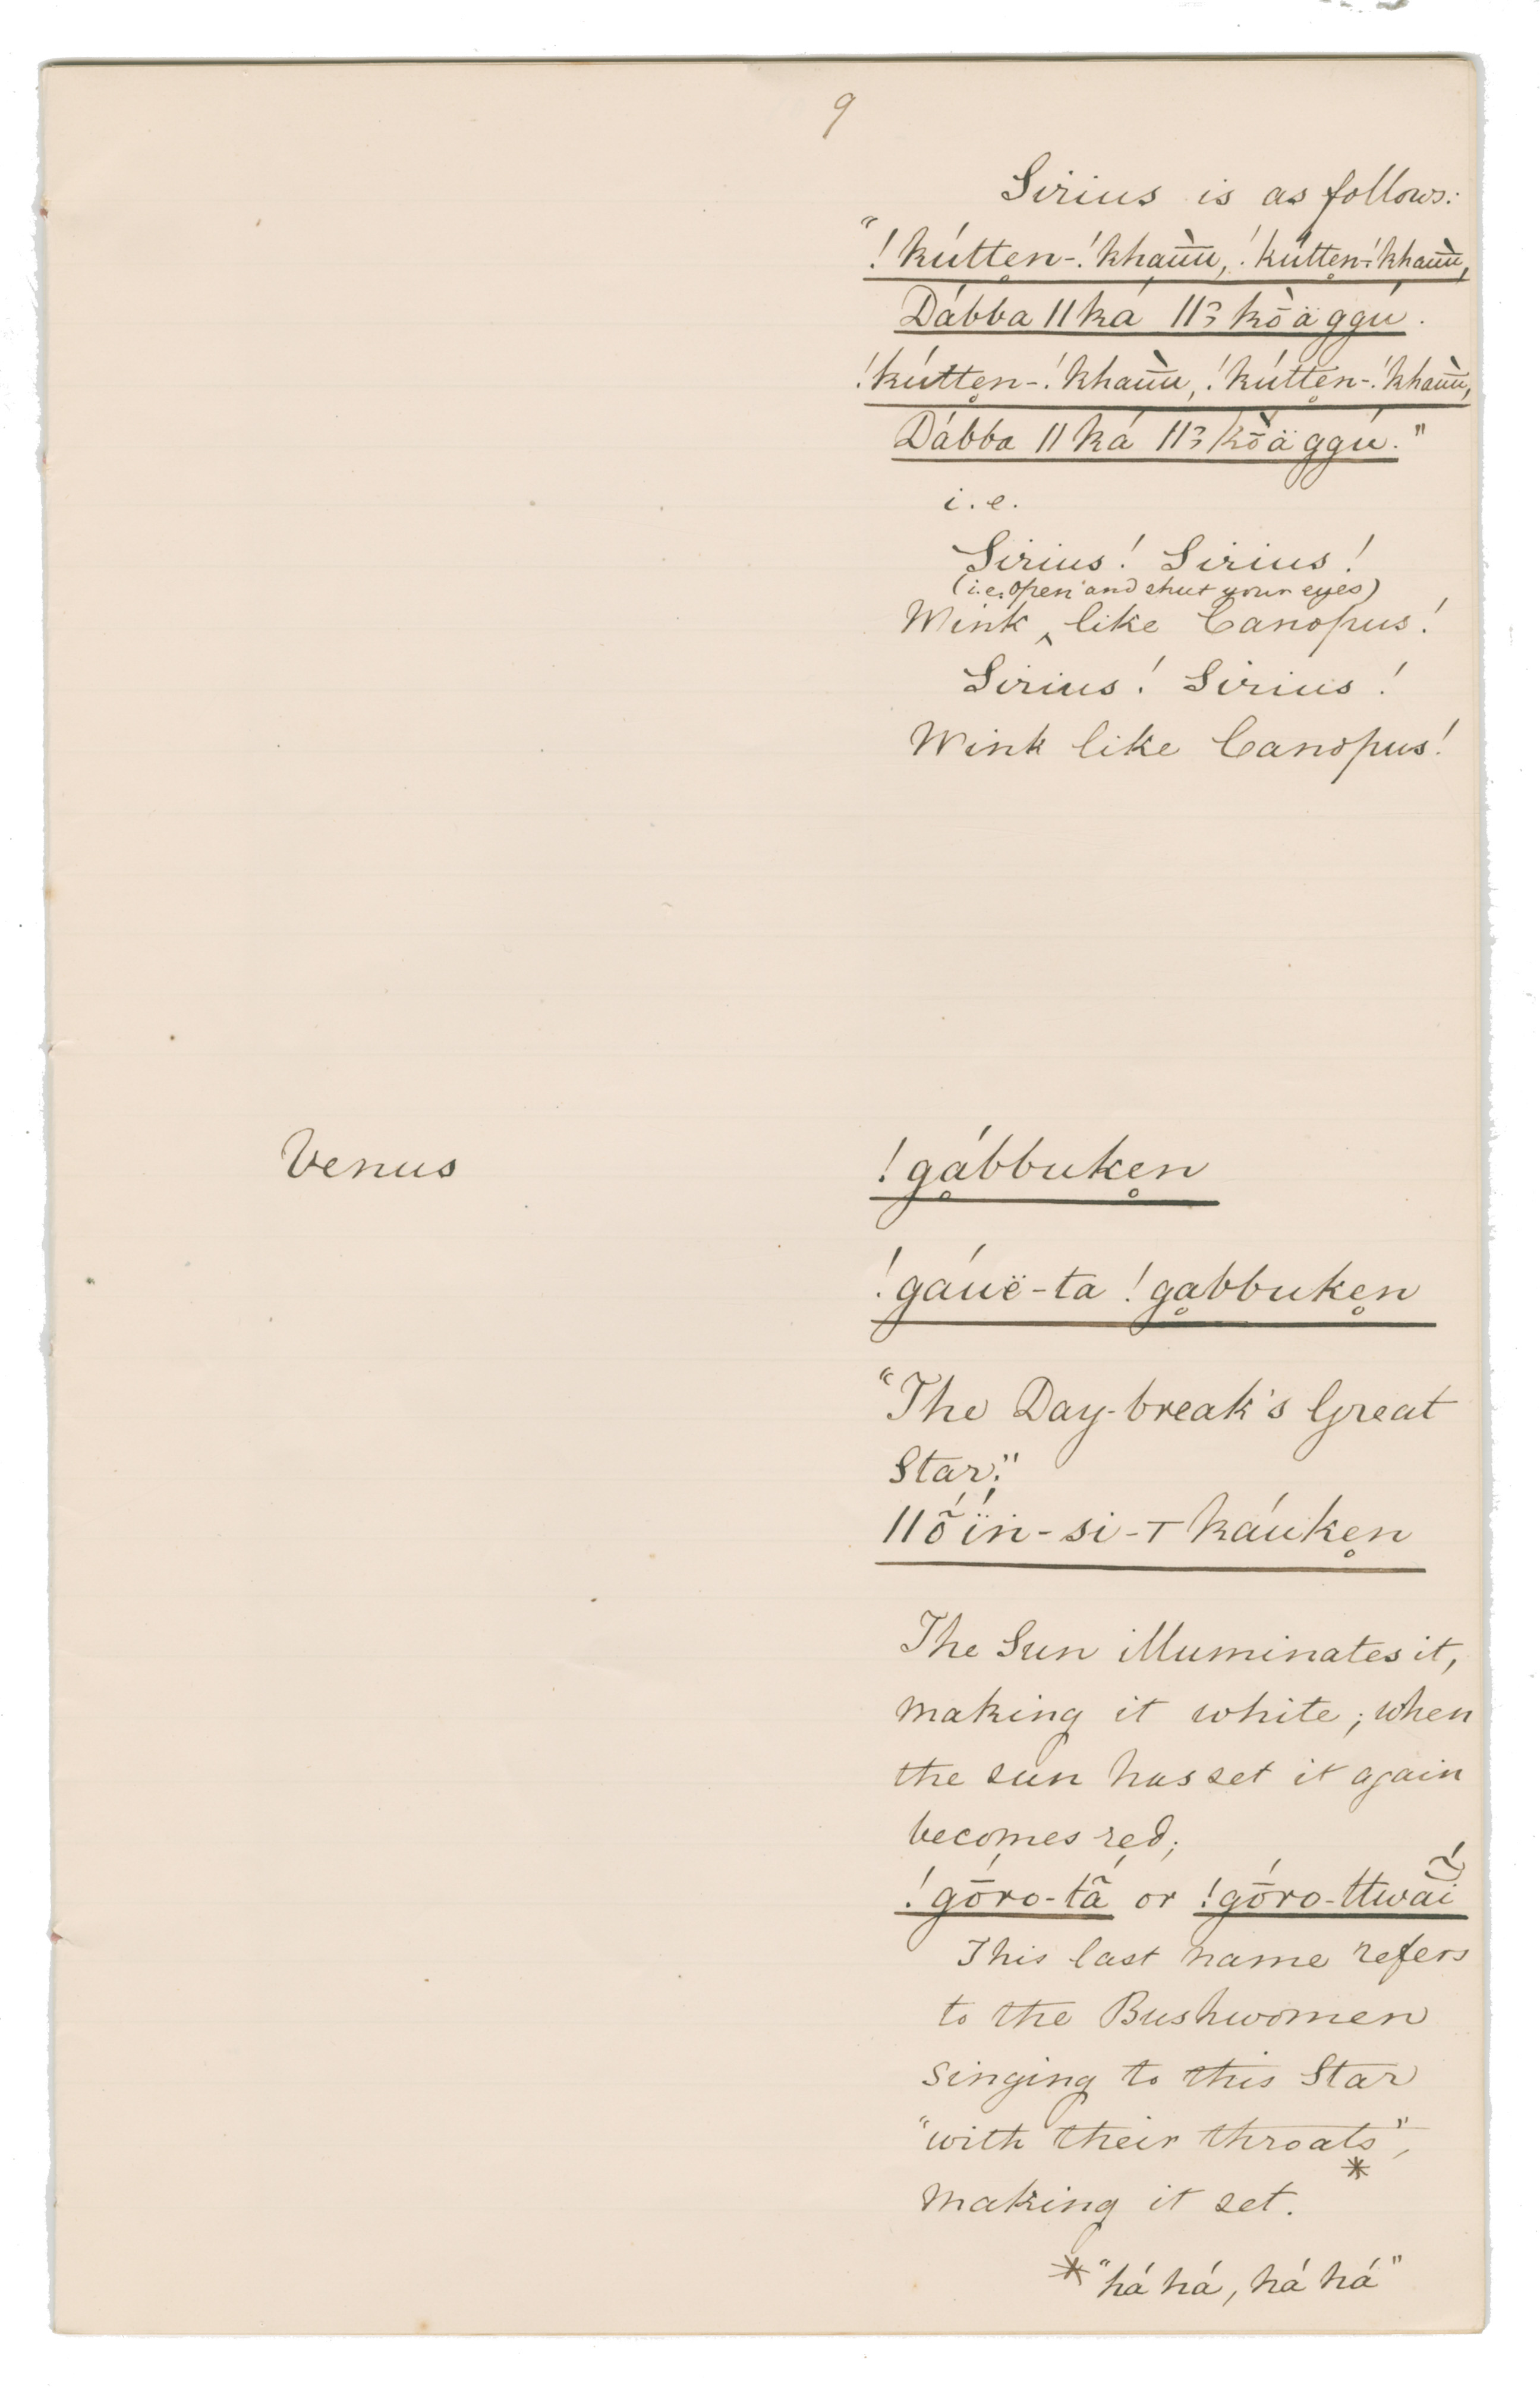 9
Sirius is as follows:
"!kútten̥-!khaū̀u, !kútten̥-!khaū̀u,
Dábba ǁká ǁɂkṑäggú.
!kútten̥-!khaū̀u, !kútten̥-!khaū̀u,
Dábba ǁká ǁɂkṑäggú."
i.e.
Sirius! Sirius!
(i.e. open and shut your eyes)
Wink ‸ like Canopus!
Sirius! Sirius!
Wink like Canopus!
Venus
!gḁ́bbuke̥n
!gáuë-ta !gḁbbuke̥n
"The Day-break's Great
Star."
ǁṍḯn-si-⊤káuke̥n
The Sun illuminates it,
making it white; when
the sun has set it again
becomes red;
!gṓro-tã́ or !gṓro-ttwãí
This last name refers
to the Bushwomen
singing to this Star
"with their throats",*
making it set.
* "há há, há há"